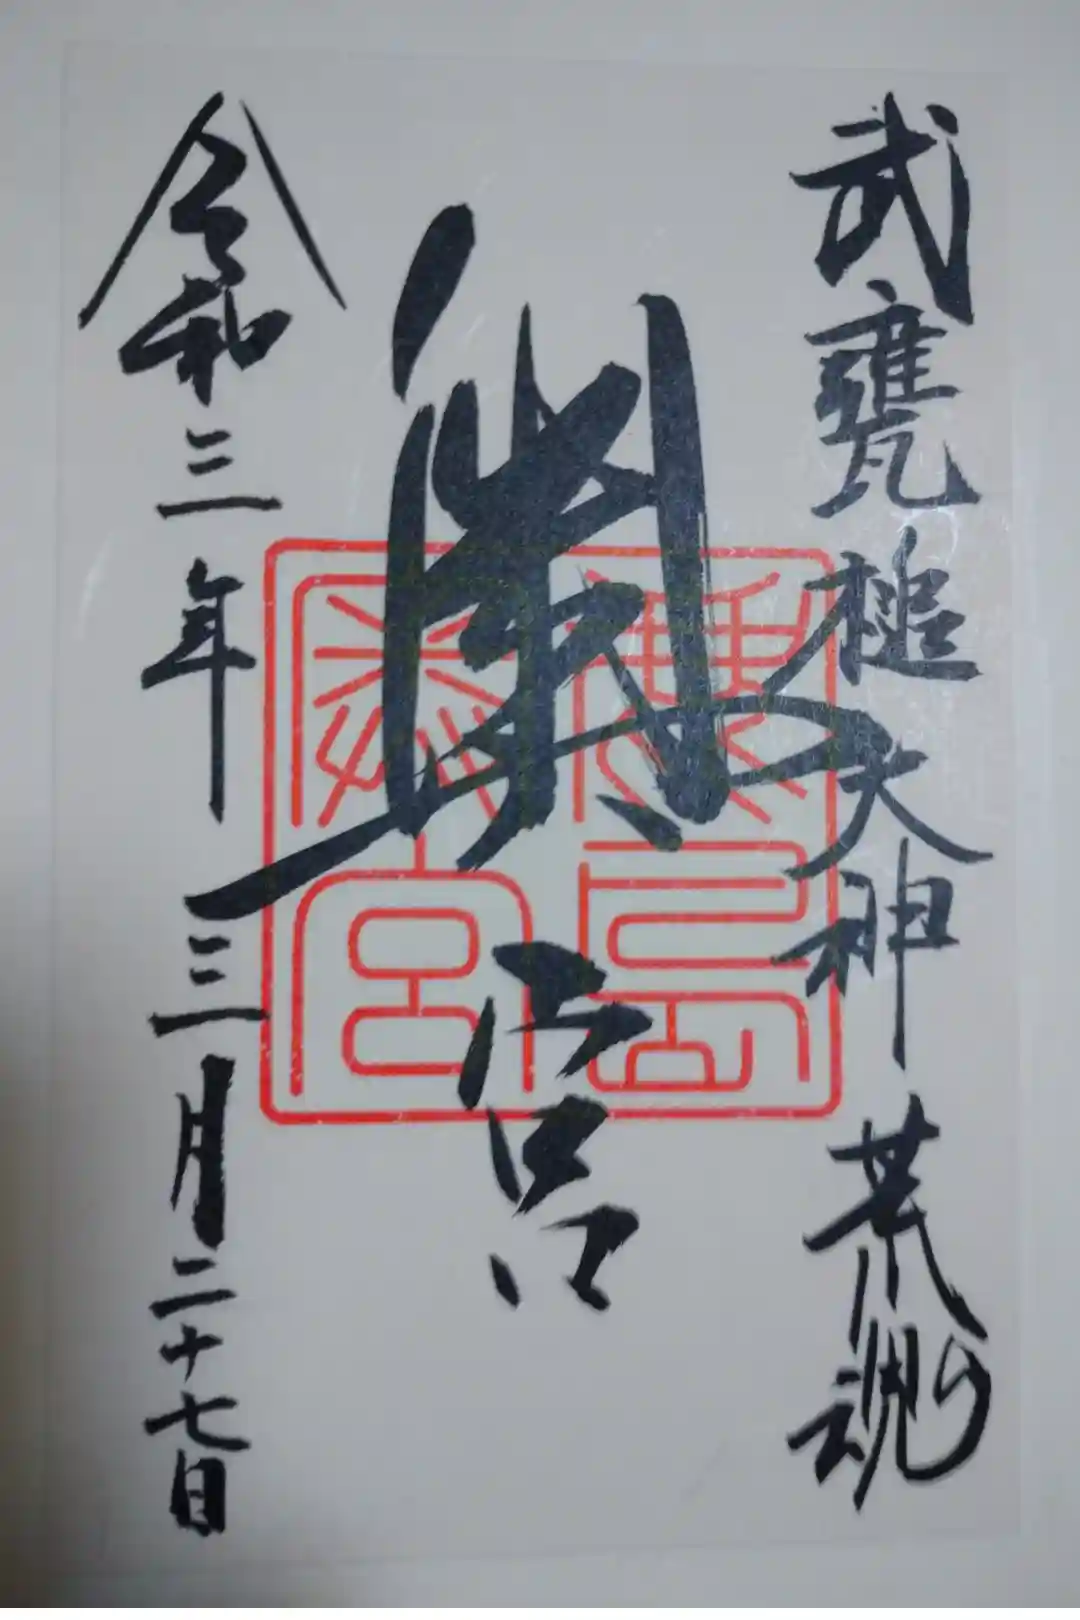 武甕槌大神 荒魂
奥宮
鹿島
奥宮
令和三年三月二十七日